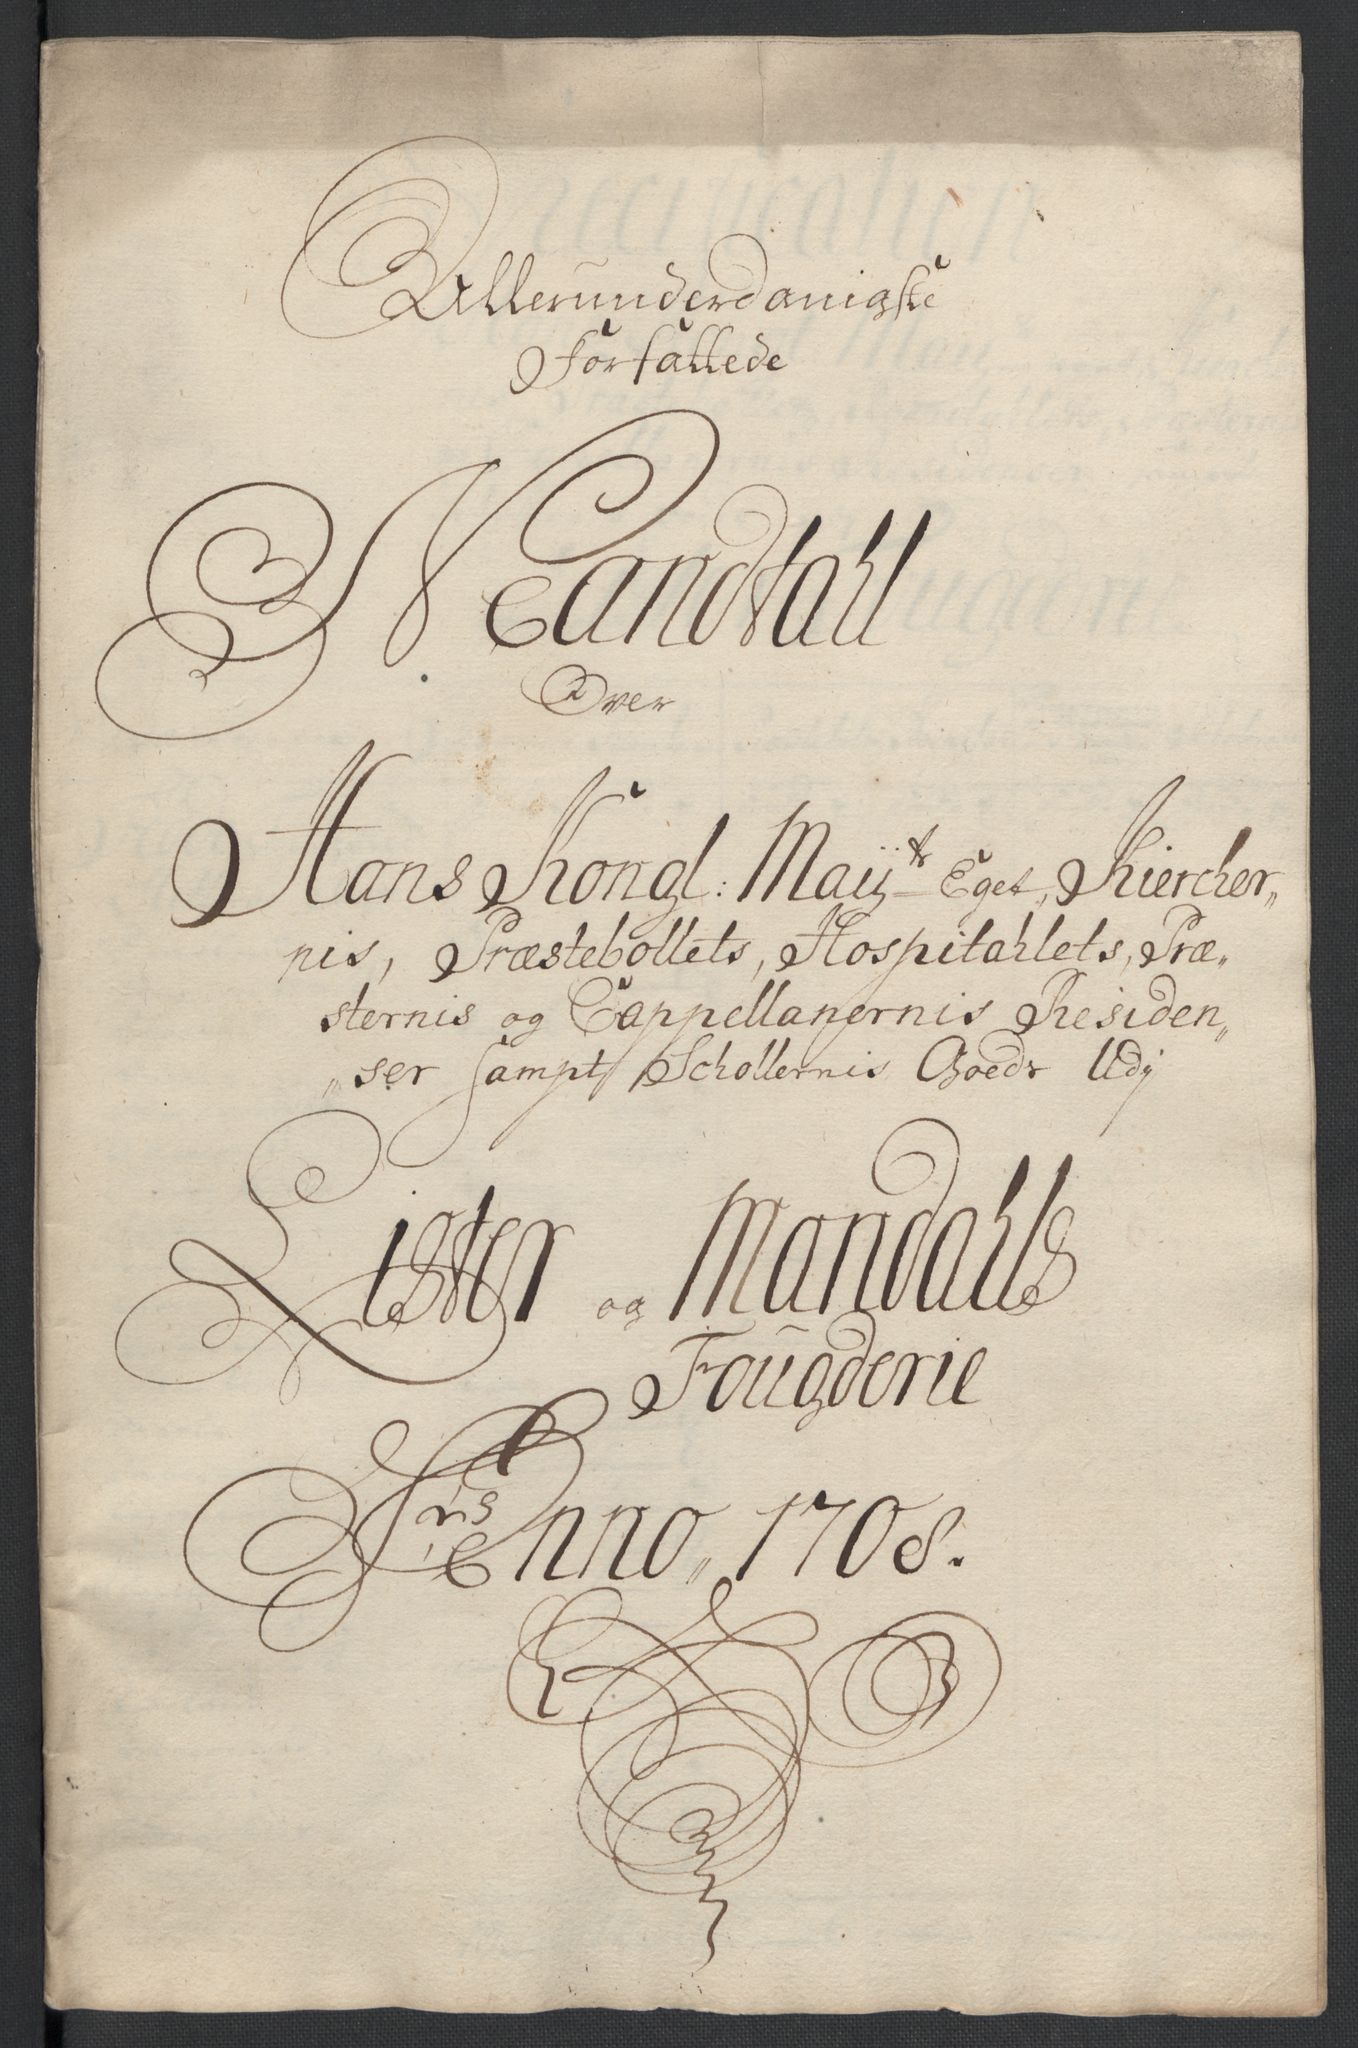 Allerunderdanigste
Forfattede
Mandtall
Over
Hans Kongl: Maÿts Eget, Kiercher„
nis, Præstebollets, Hospitahlets, Præ„
sternis og Cappellanernis Residen„
„ser sampt Schollernis Goeds Udj
Lister og Mandahls
Fougderie
Anno„ 1708.